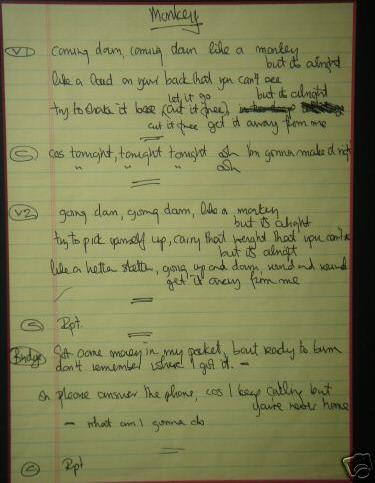 Monkey
V1 coming down, coming down like a monkey
but its alright
like a load on your back that you can't see
but its alright
let it go
try to shake it loose (cut it free)
cut it free get it away from me
C cos tonight, tonight tonight ooh I'm gonna make it right
" " " ooh
V2 going down, going down, like a monkey
but its alright
try to pick yourself up, carry that weight that you can't
but its alright
like a helter skelter, going up and down, round and round
get it away from me
C Rpt.
Bridge Got some money in my pocket, bout ready to burn
don't remember where I got it. –
oh please answer the phone, cos I keep calling but
you're never home
– what am I gonna do
C Rpt